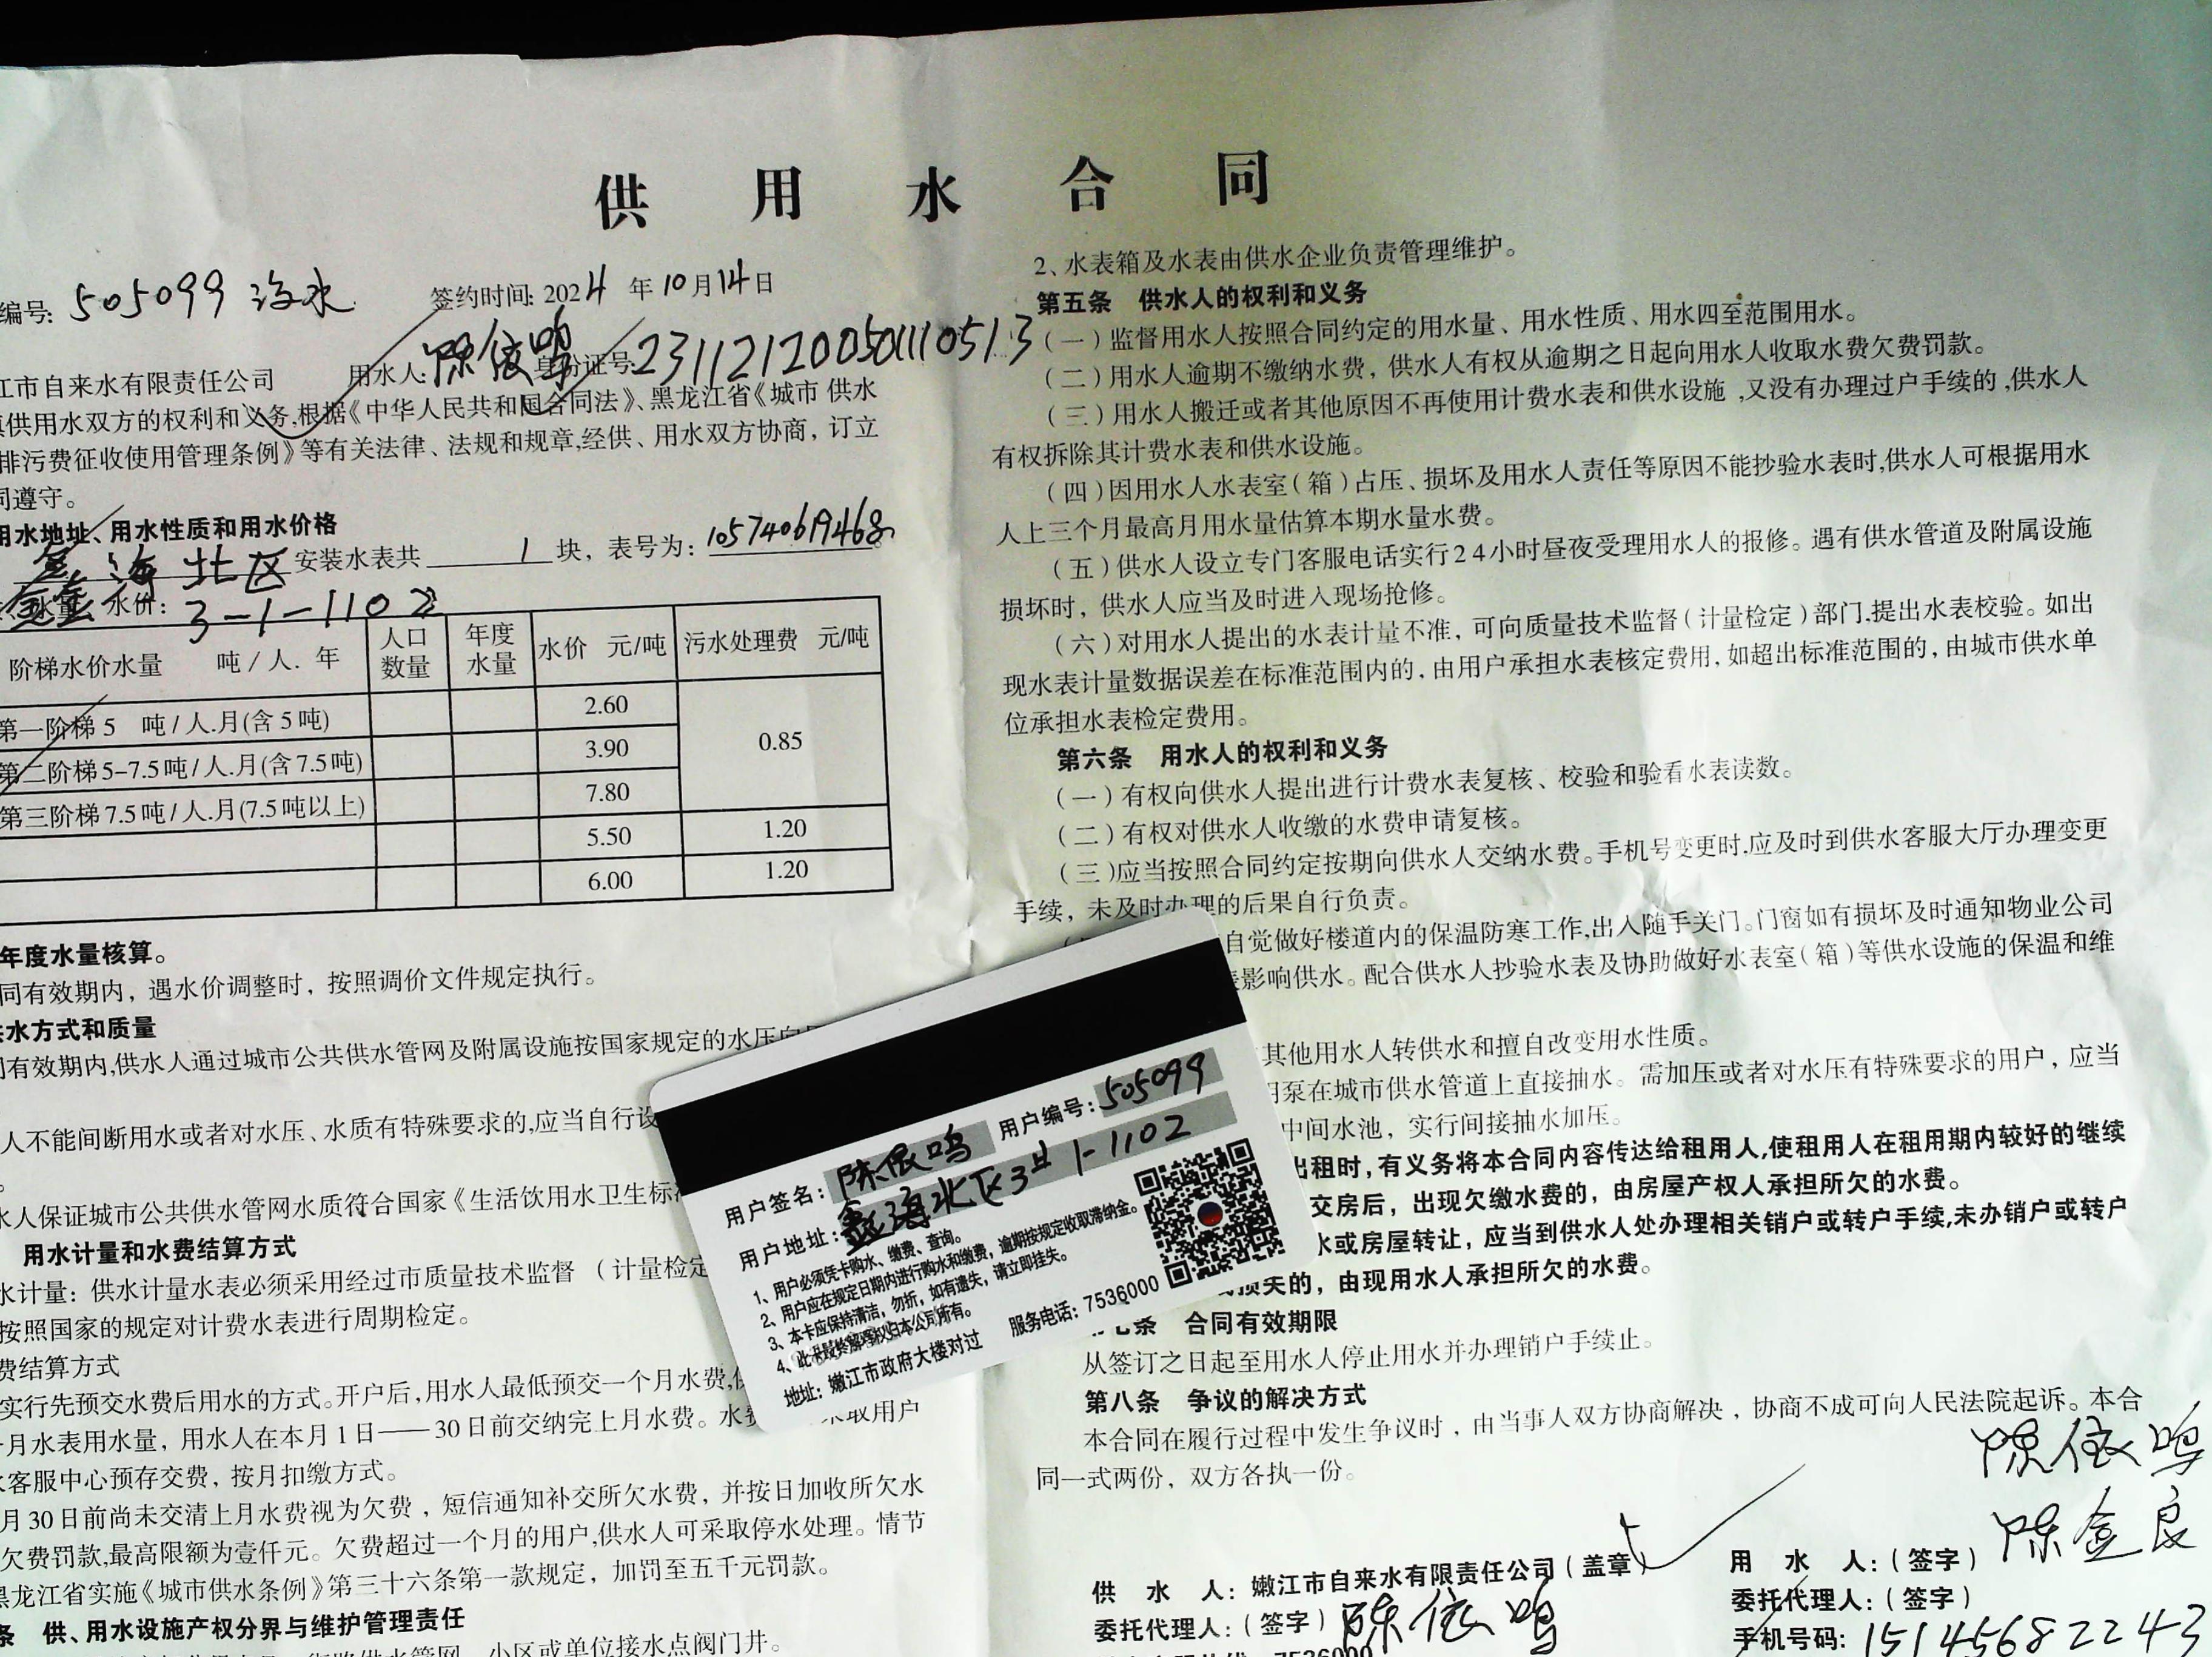 供用水合同
编号: 505099
签约时间: 2024年10月14日
江市自来水有限责任公司 用水人: 陈依鸣 身份证号:
供用水双方的权利和义务,根据《中华人民共和国合同法》、黑龙江省《城市 供水
排污费征收使用管理条例》等有关法律、法规和规章,经供、用水双方协商，订立
同遵守。
用水地址、用水性质和用水价格
鑫海北区 安装水表共 1 块，表号为:
水量、水价: 3-1-1102
阶梯水价水量 吨/人.年 人口数量 年度水量 水价 元/吨 污水处理费 元/吨
第一阶梯 5 吨/人.月(含5吨) 2.60 0.85
第二阶梯 5-7.5吨/人.月(含7.5吨) 3.90
第三阶梯 7.5吨/人.月(7.5吨以上) 7.80
5.50 1.20
6.00 1.20
年度水量核算。
同有效期内，遇水价调整时，按照调价文件规定执行。
水方式和质量
有效期内,供水人通过城市公共供水管网及附属设施按国家规定的水压
人不能间断用水或者对水压、水质有特殊要求的,应当自行设
水人保证城市公共供水管网水质符合国家《生活饮用水卫生标
用水计量和水费结算方式
水计量：供水计量水表必须采用经过市质量技术监督（计量检定
按照国家的规定对计费水表进行周期检定。
费结算方式
实行先预交水费后用水的方式。开户后,用水人最低预交一个月水费,
月水表用水量，用水人在本月1日——30日前交纳完上月水费。水 取用户
客服中心预存交费，按月扣缴方式。
月30日前尚未交清上月水费视为欠费，短信通知补交所欠水费，并按日加收所欠水
欠费罚款,最高限额为壹仟元。欠费超过一个月的用户,供水人可采取停水处理。情节
黑龙江省实施《城市供水条例》第三十六条第一款规定，加罚至五千元罚款。
条 供、用水设施产权分界与维护管理责任
小区或单位接水点阀门井。
2、水表箱及水表由供水企业负责管理维护。
第五条 供水人的权利和义务
（一）监督用水人按照合同约定的用水量、用水性质、用水四至范围用水。
（二）用水人逾期不缴纳水费，供水人有权从逾期之日起向用水人收取水费欠费罚款。
（三）用水人搬迁或者其他原因不再使用计费水表和供水设施,又没有办理过户手续的,供水人
有权拆除其计费水表和供水设施。
（四）因用水人水表室(箱)占压、损坏及用水人责任等原因不能抄验水表时,供水人可根据用水
人上三个月最高月用水量估算本期水量水费。
（五）供水人设立专门客服电话实行24小时昼夜受理用水人的报修。遇有供水管道及附属设施
损坏时，供水人应当及时进入现场抢修。
（六）对用水人提出的水表计量不准，可向质量技术监督(计量检定)部门,提出水表校验。如出
现水表计量数据误差在标准范围内的，由用户承担水表核定费用,如超出标准范围的，由城市供水单
位承担水表检定费用。
第六条 用水人的权利和义务
（一）有权向供水人提出进行计费水表复核、校验和验看水表读数。
（二）有权对供水人收缴的水费申请复核。
（三）应当按照合同约定按期向供水人交纳水费。手机号变更时.应及时到供水客服大厅办理变更
手续，未及时办理的后果自行负责。
自觉做好楼道内的保温防寒工作,出入随手关门。门窗如有损坏及时通知物业公司
影响供水。配合供水人抄验水表及协助做好水表室(箱)等供水设施的保温和维
其他用水人转供水和擅自改变用水性质。
用泵在城市供水管道上直接抽水。需加压或者对水压有特殊要求的用户，应当
中间水池，实行间接抽水加压。
出租时，有义务将本合同内容传达给租用人,使租用人在租用期内较好的继续
交房后，出现欠缴水费的，由房屋产权人承担所欠的水费。
水或房屋转让，应当到供水人处办理相关销户或转户手续,未办销户或转户
损失的，由现用水人承担所欠的水费。
条 合同有效期限
从签订之日起至用水人停止用水并办理销户手续止。
第八条 争议的解决方式
本合同在履行过程中发生争议时，由当事人双方协商解决，协商不成可向人民法院起诉。本合
同一式两份，双方各执一份。
陈依鸣
陈金良
供 水 人：嫩江市自来水有限责任公司（盖章）
委托代理人：（签字）陈依鸣
7536000
用 水 人：（签字）
委托代理人：（签字）
手机号码：15145682243
用户签名：陈依鸣 用户编号：505099
用户地址：鑫海北区3# 1-1102
1、用户必须凭卡购水、缴费、查询。
2、用户应在规定日期内进行购水和缴费，逾期按规定收取滞纳金。
3、本卡应保持清洁，勿折，如有遗失，请立即挂失。
4、此卡最终解释权归本公司所有。
地址：嫩江市政府大楼对过 服务电话：7536000